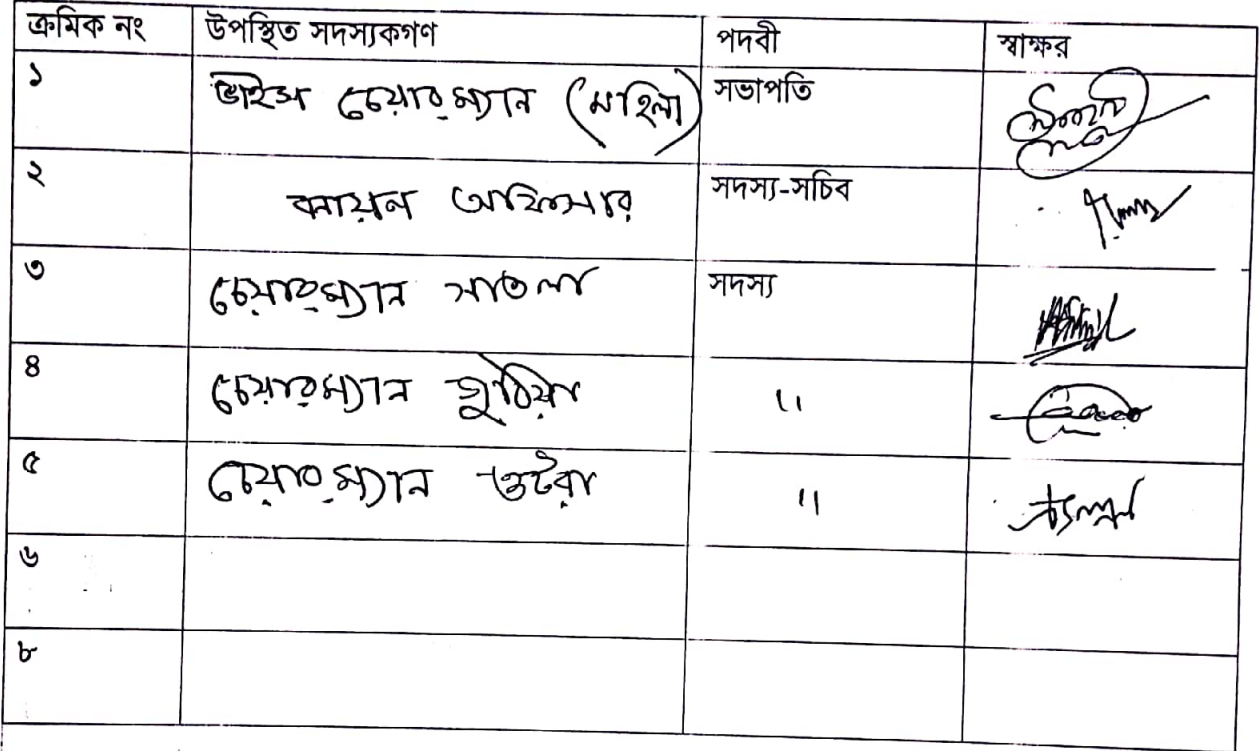 ক্রমিক নং উপস্থিত সদস্যকগণ পদবী স্বাক্ষর
১ ভাইস চেয়ারম্যান (মহিলা) সভাপতি
২ অফিসার সদস্য-সচিব
৩ চেয়ারম্যান সাতলা সদস্য
৪ চেয়ারম্যান "
৫ চেয়ারম্যান ওটরা "
৬
৮